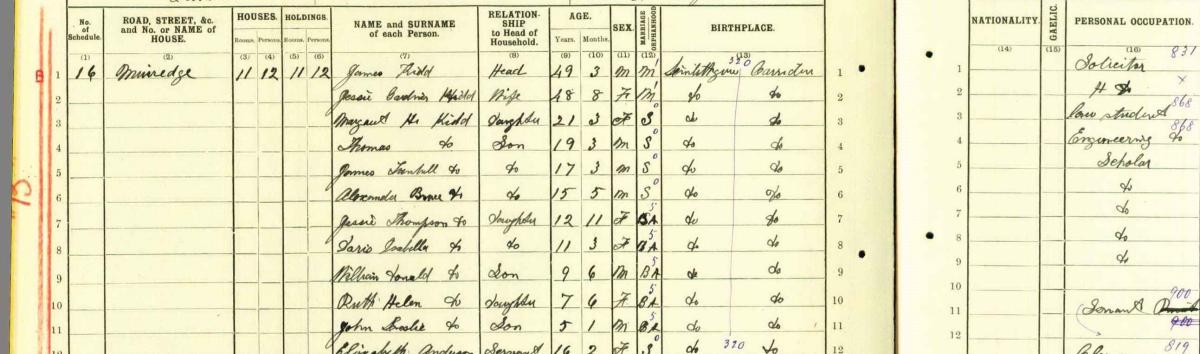 No. of Schedule. ROAD, STREET, &c. and No. or NAME of HOUSE. HOUSES. HOLDINGS. NAME and SURNAME of each Person. RELATIONSHIP to Head of Household. AGE. SEX. MARRIAGE or ORPHANHOOD BIRTHPLACE. NATIONALITY. GAELIC. PERSONAL OCCUPATION.
Rooms. Persons. Rooms. Persons. Years. Months.
(1) (2) (3) (4) (5) (6) (7) (8) (9) (10) (11) (12) (13) (14) (15) (16)
1 16 Muiredge 11 12 11 12 James Kidd Head 49 3 M M Linlithgow 320 Carriden 1 1 Solicitor 831
2 Jessie Gardner Kidd Wife 48 8 F M do do 2 2 H D x
3 Margaret H. Kidd Daughter 21 3 F S do do 3 3 Law student 868
4 Thomas do Son 19 3 M S do do 4 4 Engineering do 868
5 James do do 17 3 M S do do 5 5 Scholar
6 Alexander Bruce do do 15 5 M S do do 6 6 do
7 Jessie Thompson do Daughter 12 11 F BA do do 7 7 do
8 Isabella do do 11 3 F BA do do 8 8 do
9 William Donald do Son 9 6 M BA do do 9 9 do
10 Ruth Helen do Daughter 7 6 F BA do do 10 10 900
11 John Leslie do Son 5 1 M BA do do 11 11 Servant 900
12 Elizabeth Anderson Servant 16 2 F S do 320 do 12 12 819